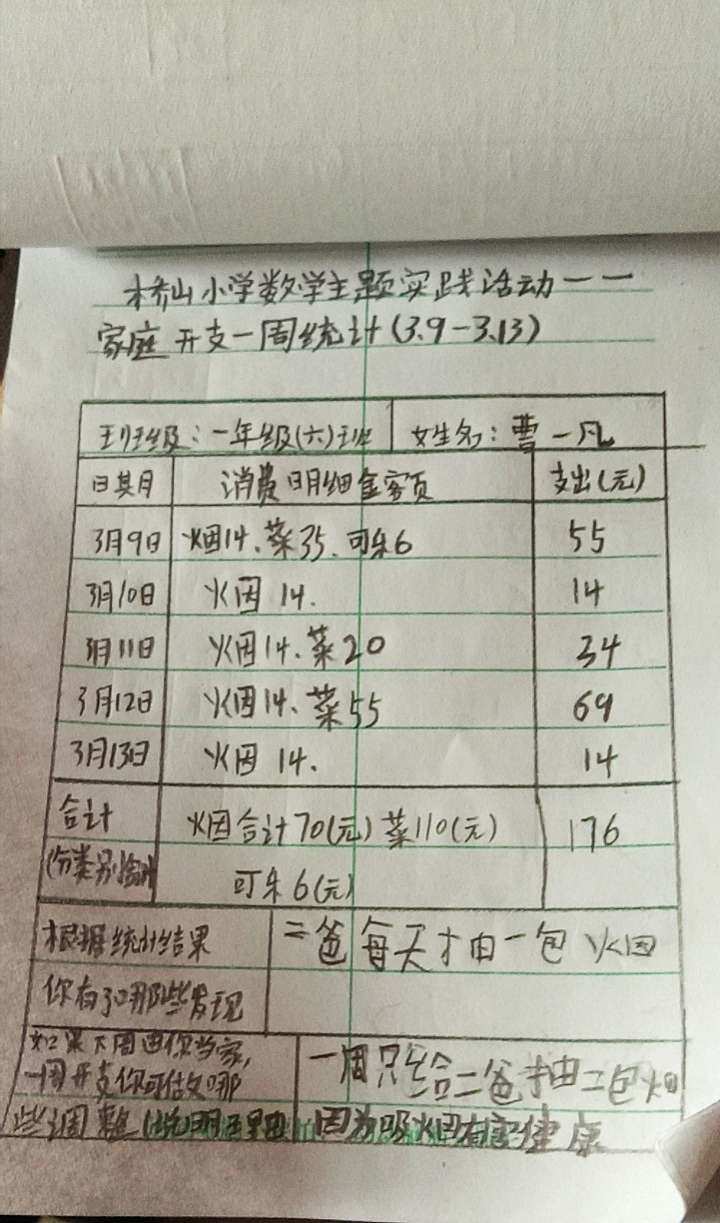 桥山小学数学主题实践活动一一
家庭开支一周统计(3.9-3.13)
班级:一年级(六)班 姓名:曹一凡
日期 消费明细金额 支出(元)
3月9日 烟14、菜35、可乐6 55
3月10日 烟14. 14
3月11日 烟14、菜20 34
3月12日 烟14、菜55 69
3月13日 烟14. 14
合计 烟合计70(元)菜110(元) 176
(分类别合计) 可乐6(元)
根据统计结果 二爸每天抽一包烟
你有了哪些发现
如果下周由你当家, 一周只给二爸抽二包烟
一周开支你可做哪
些调整(说明理由) 因为吸烟有害健康